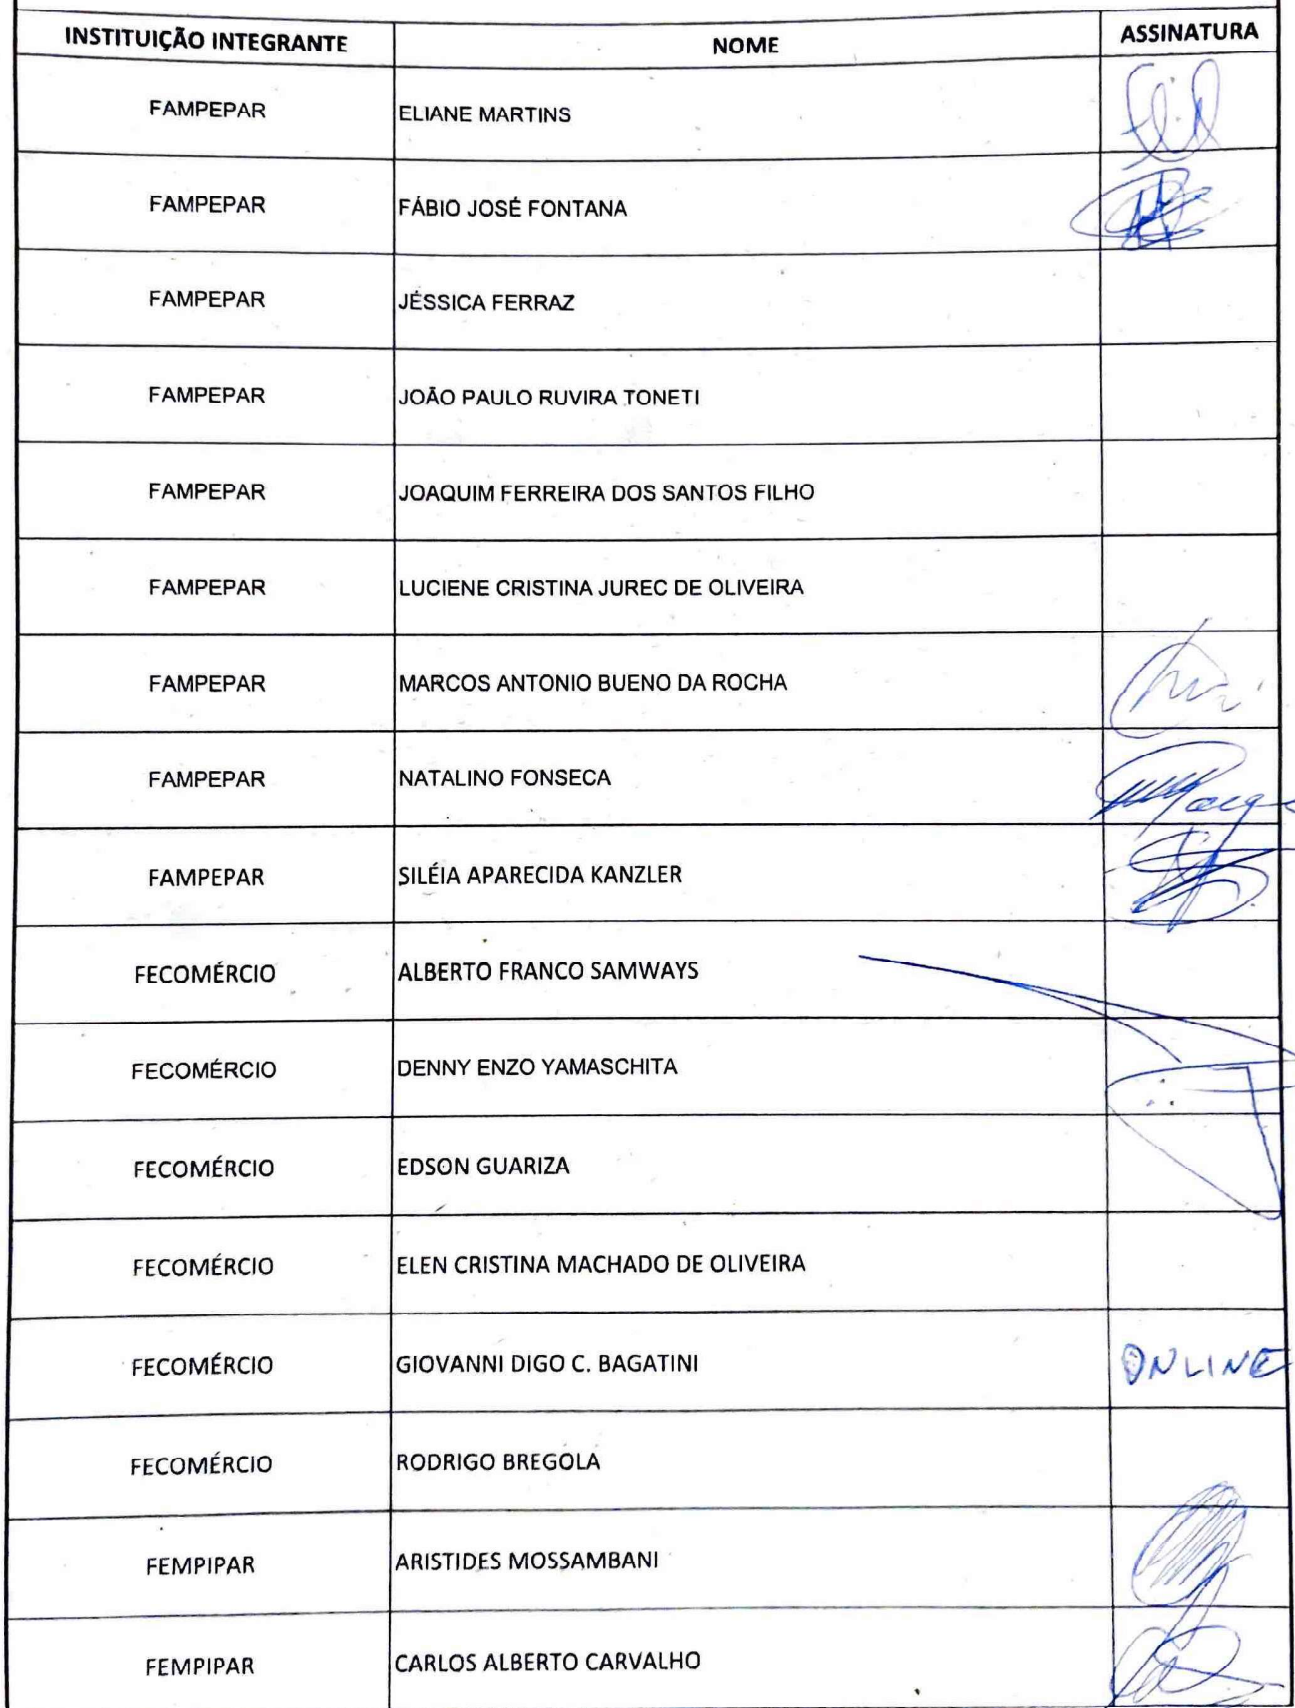 INSTITUIÇÃO INTEGRANTE NOME ASSINATURA
FAMPEPAR ELIANE MARTINS
FAMPEPAR FÁBIO JOSÉ FONTANA
FAMPEPAR JÉSSICA FERRAZ
FAMPEPAR JOÃO PAULO RUVIRA TONETI
FAMPEPAR JOAQUIM FERREIRA DOS SANTOS FILHO
FAMPEPAR LUCIENE CRISTINA JUREC DE OLIVEIRA
FAMPEPAR MARCOS ANTONIO BUENO DA ROCHA
FAMPEPAR NATALINO FONSECA
FAMPEPAR SILÉIA APARECIDA KANZLER
FECOMÉRCIO ALBERTO FRANCO SAMWAYS
FECOMÉRCIO DENNY ENZO YAMASCHITA
FECOMÉRCIO EDSON GUARIZA
FECOMÉRCIO ELEN CRISTINA MACHADO DE OLIVEIRA
FECOMÉRCIO GIOVANNI DIGO C. BAGATINI ONLINE
FECOMÉRCIO RODRIGO BREGOLA
FEMPIPAR ARISTIDES MOSSAMBANI
FEMPIPAR CARLOS ALBERTO CARVALHO